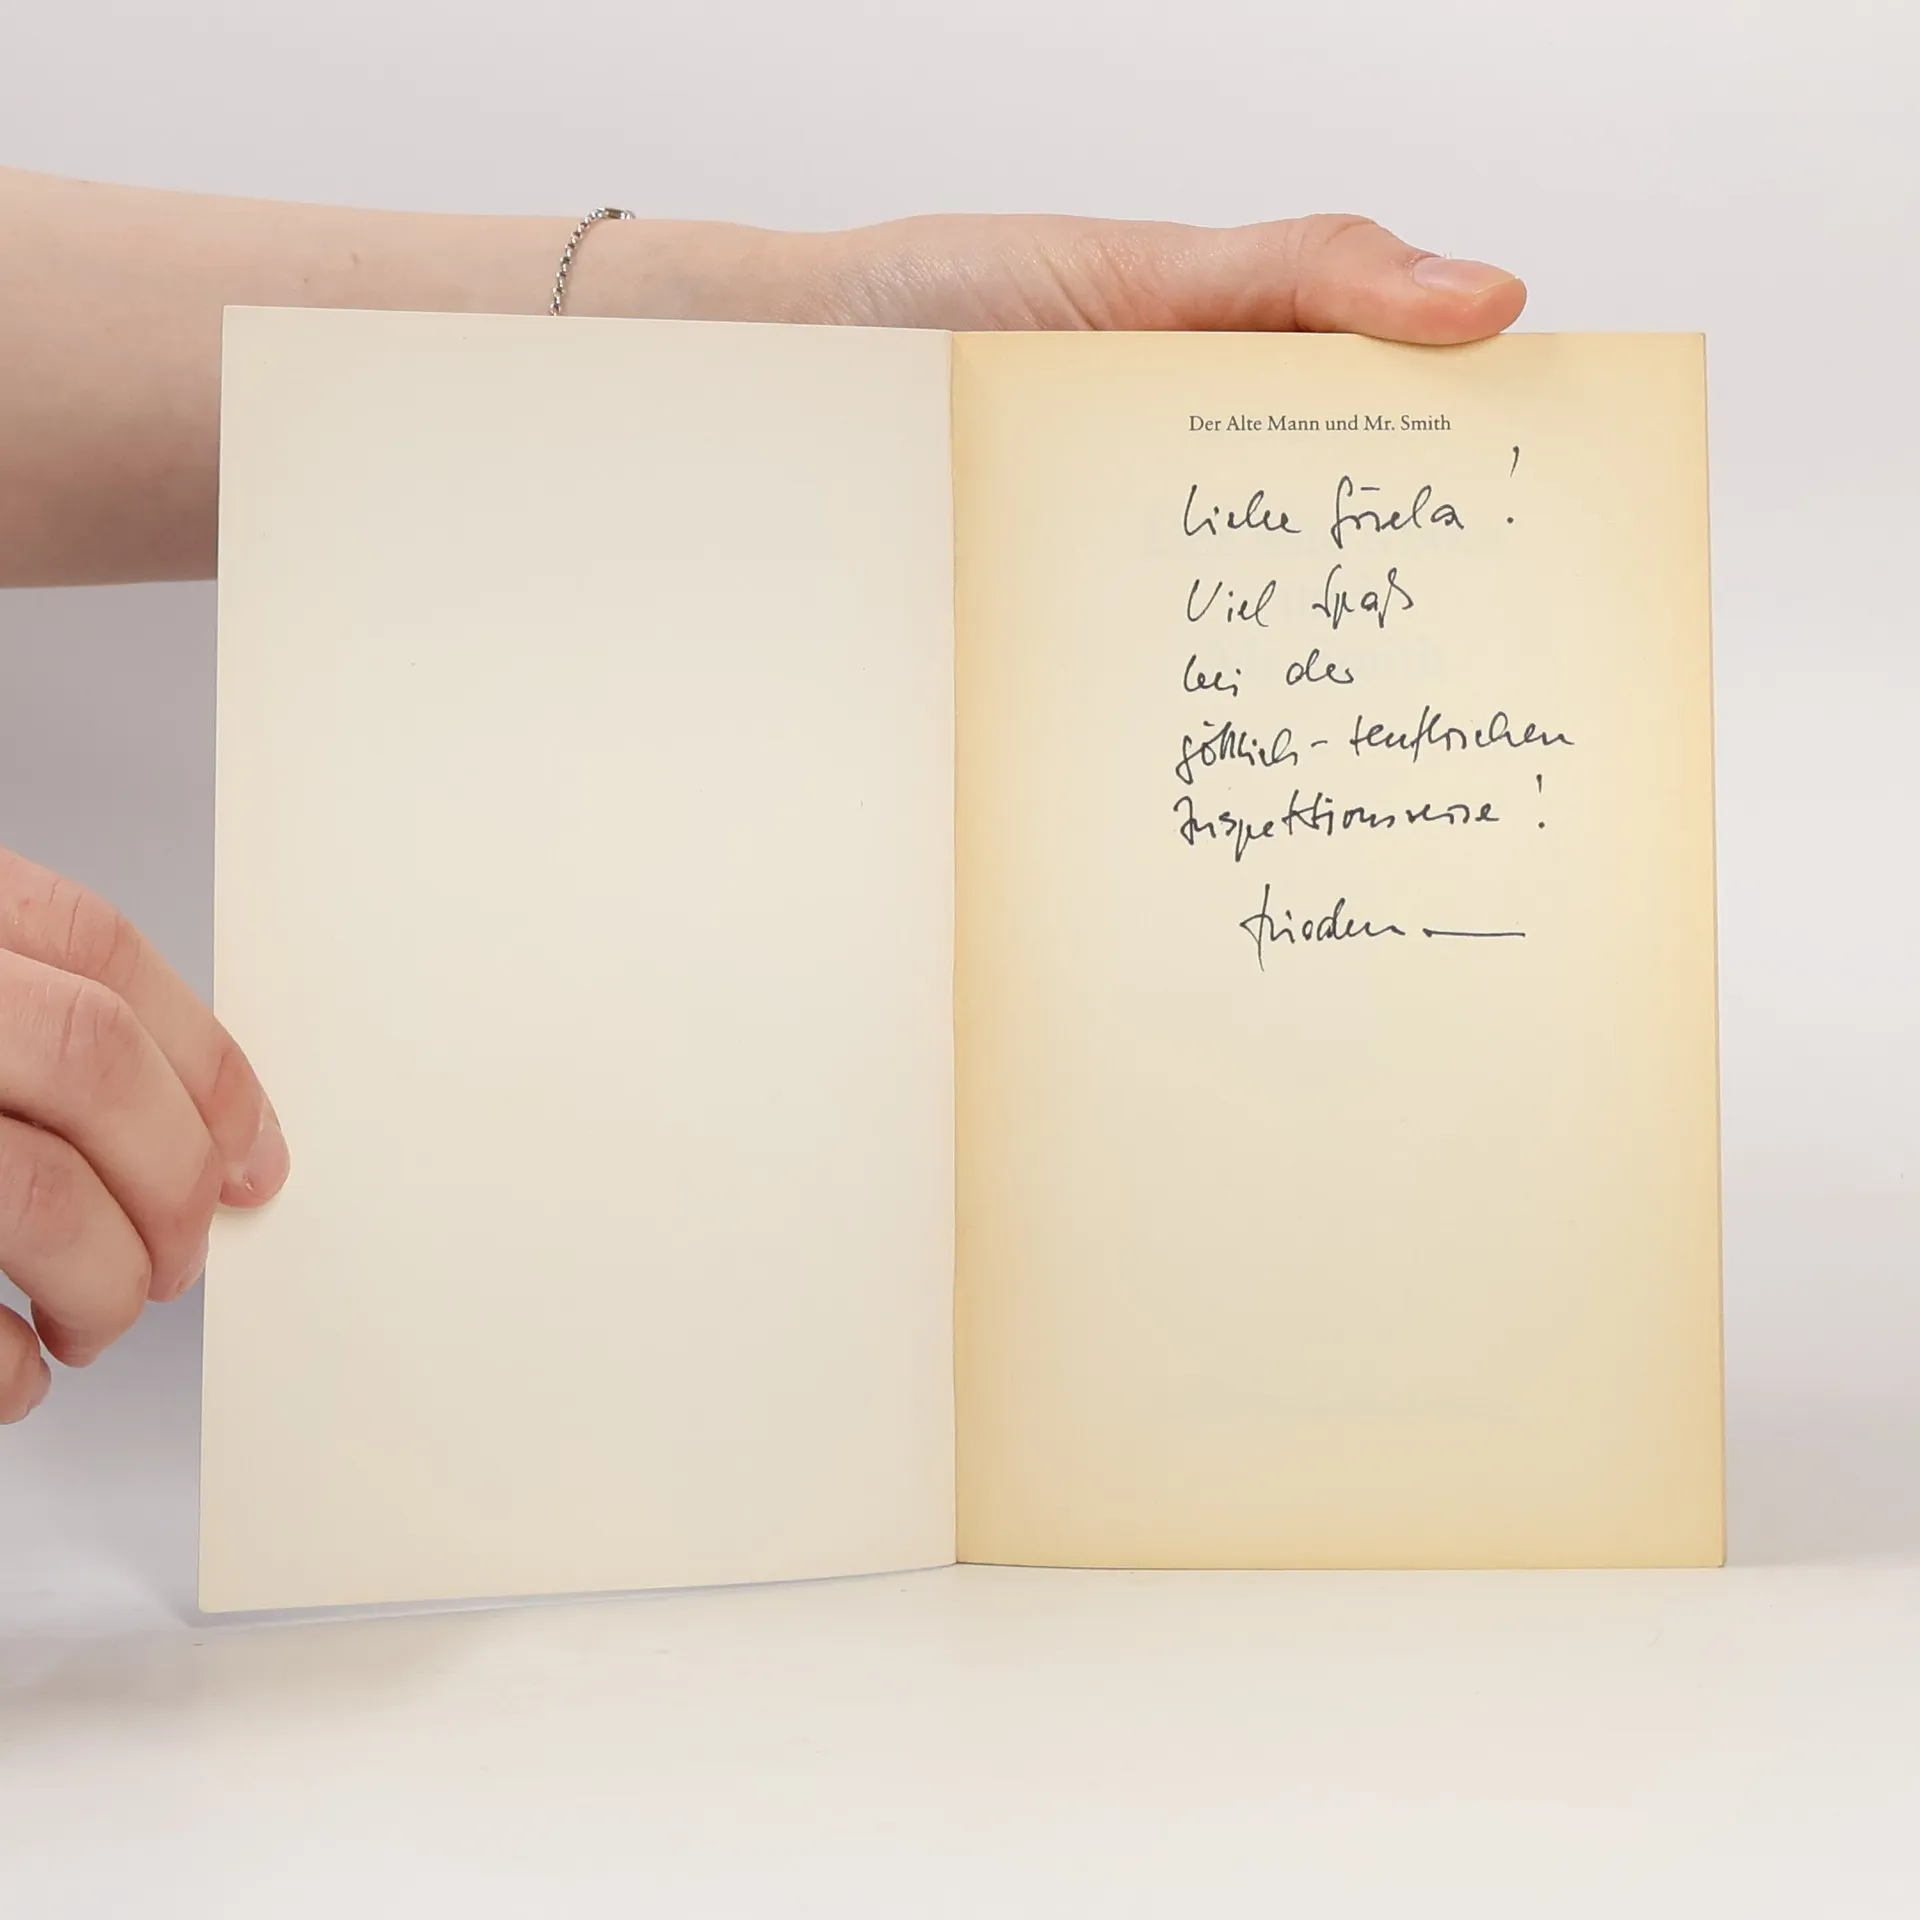 Der Alte Mann und Mr. Smith
Liebe Gisela!
Viel Spaß
bei der
göttlich-teuflischen
Inspektionsreise!